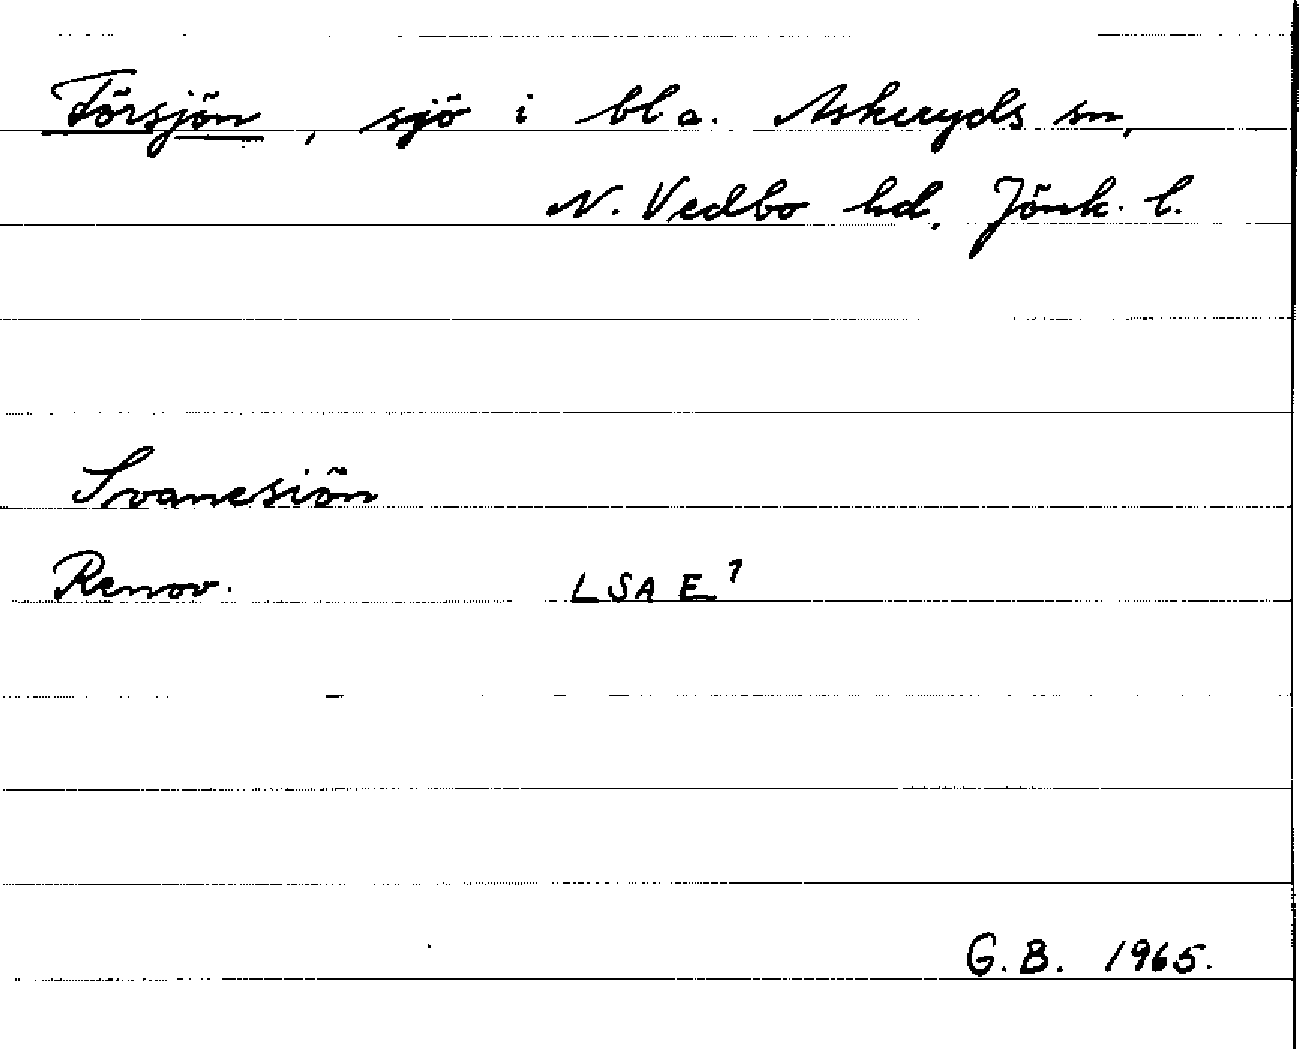 Försjön, sjö i bl a. Askeryds sn,
N. Vedbo hd, Jönk. l.
Svanesiön
Renov. LSA E¹
G. B. 1965.